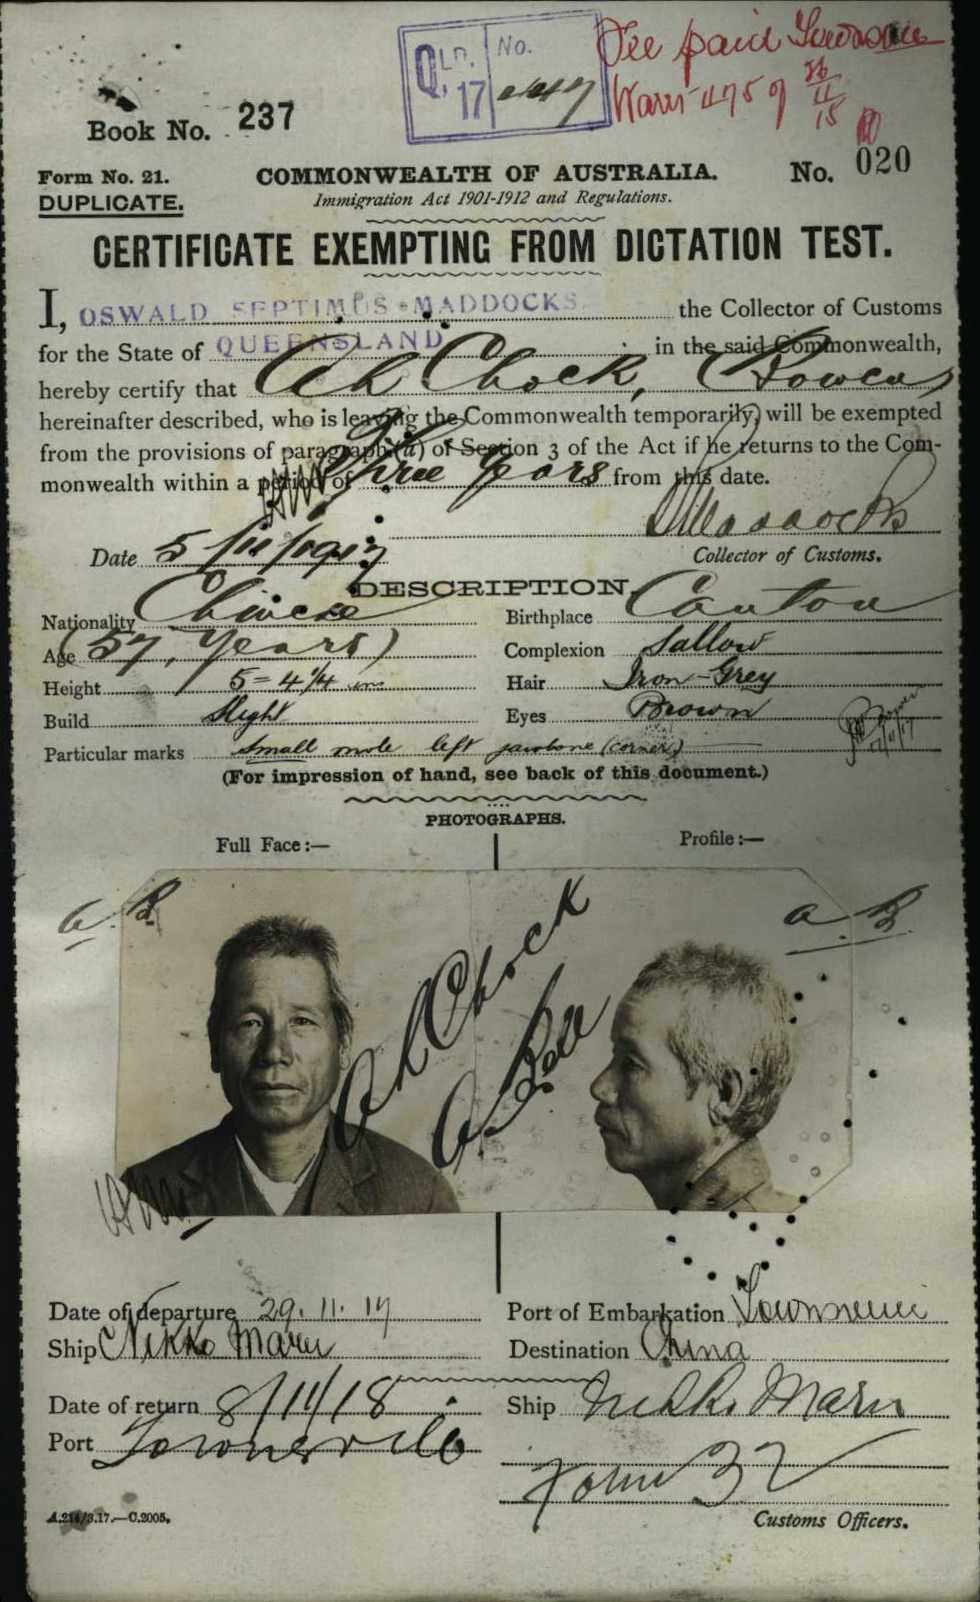 QLD. No.
17
Fee paid
Book No. 237
Form No. 21. COMMONWEALTH OF AUSTRALIA. No. 020
DUPLICATE. Immigration Act 1901-1912 and Regulations.
CERTIFICATE EXEMPTING FROM DICTATION TEST.
I, OSWALD SEPTIMUS MADDOCKS the Collector of Customs
for the State of QUEENSLAND in the said Commonwealth,
hereby certify that Ah Chock, (Bowen)
hereinafter described, who is leaving the Commonwealth temporarily, will be exempted
from the provisions of paragraph (a) of Section 3 of the Act if he returns to the Com-
monwealth within a period of Three Years from this date.
Maddocks
Date 5/11/1917 Collector of Customs.
DESCRIPTION.
Nationality Chinese Birthplace Canton
Age (57, Years) Complexion Sallow
Height 5=4 1/4 ins Hair Iron-Grey
Build Slight Eyes Brown
Particular marks Small mole left jawbone (corner)
(For impression of hand, see back of this document.)
PHOTOGRAPHS.
Full Face:— Profile:—
a. B. a. B.
Ah Chock
A. Bell
Date of departure 29.11.17 Port of Embarkation Townsville
Ship Nikko Maru Destination China
Date of return 8/11/18 Ship Nikko Maru
Port Townsville
Form 32
A.214/3.17.—C.2005. Customs Officers.